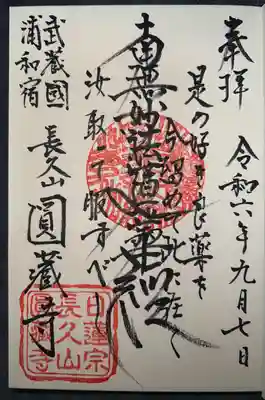 奉拝
令和六年九月七日
是の好き良薬を
今留めて此に在く
南無妙法蓮華経
汝取って服すべし
武蔵國
浦和宿
長久山 圓蔵寺
日蓮宗
長久山
圓蔵寺